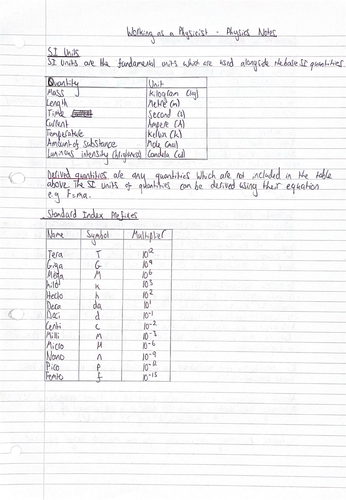 Working as a Physicist - Physics Notes
SI Units
SI units are the fundamental units which are used alongside the base SI quantities.
Quantity Unit
Mass Kilogram (kg)
Length Metre (m)
Time Second (s)
Current Ampere (A)
Temperature Kelvin (k)
Amount of substance Mole (mol)
Luminous intensity (brightness) Candela (cd)
Derived quantities are any quantities which are not included in the table
above. The SI units of quantities can be derived using their equation
e.g. F=ma.
Standard Index Prefixes
Name Symbol Multiplier
Tera T 10¹²
Giga G 10⁹
Mega M 10⁶
kilo k 10³
Hecto h 10²
Deca da 10¹
Deci d 10⁻¹
Centi c 10⁻²
Milli m 10⁻³
Micro μ 10⁻⁶
Nano n 10⁻⁹
Pico p 10⁻¹²
Femto f 10⁻¹⁵